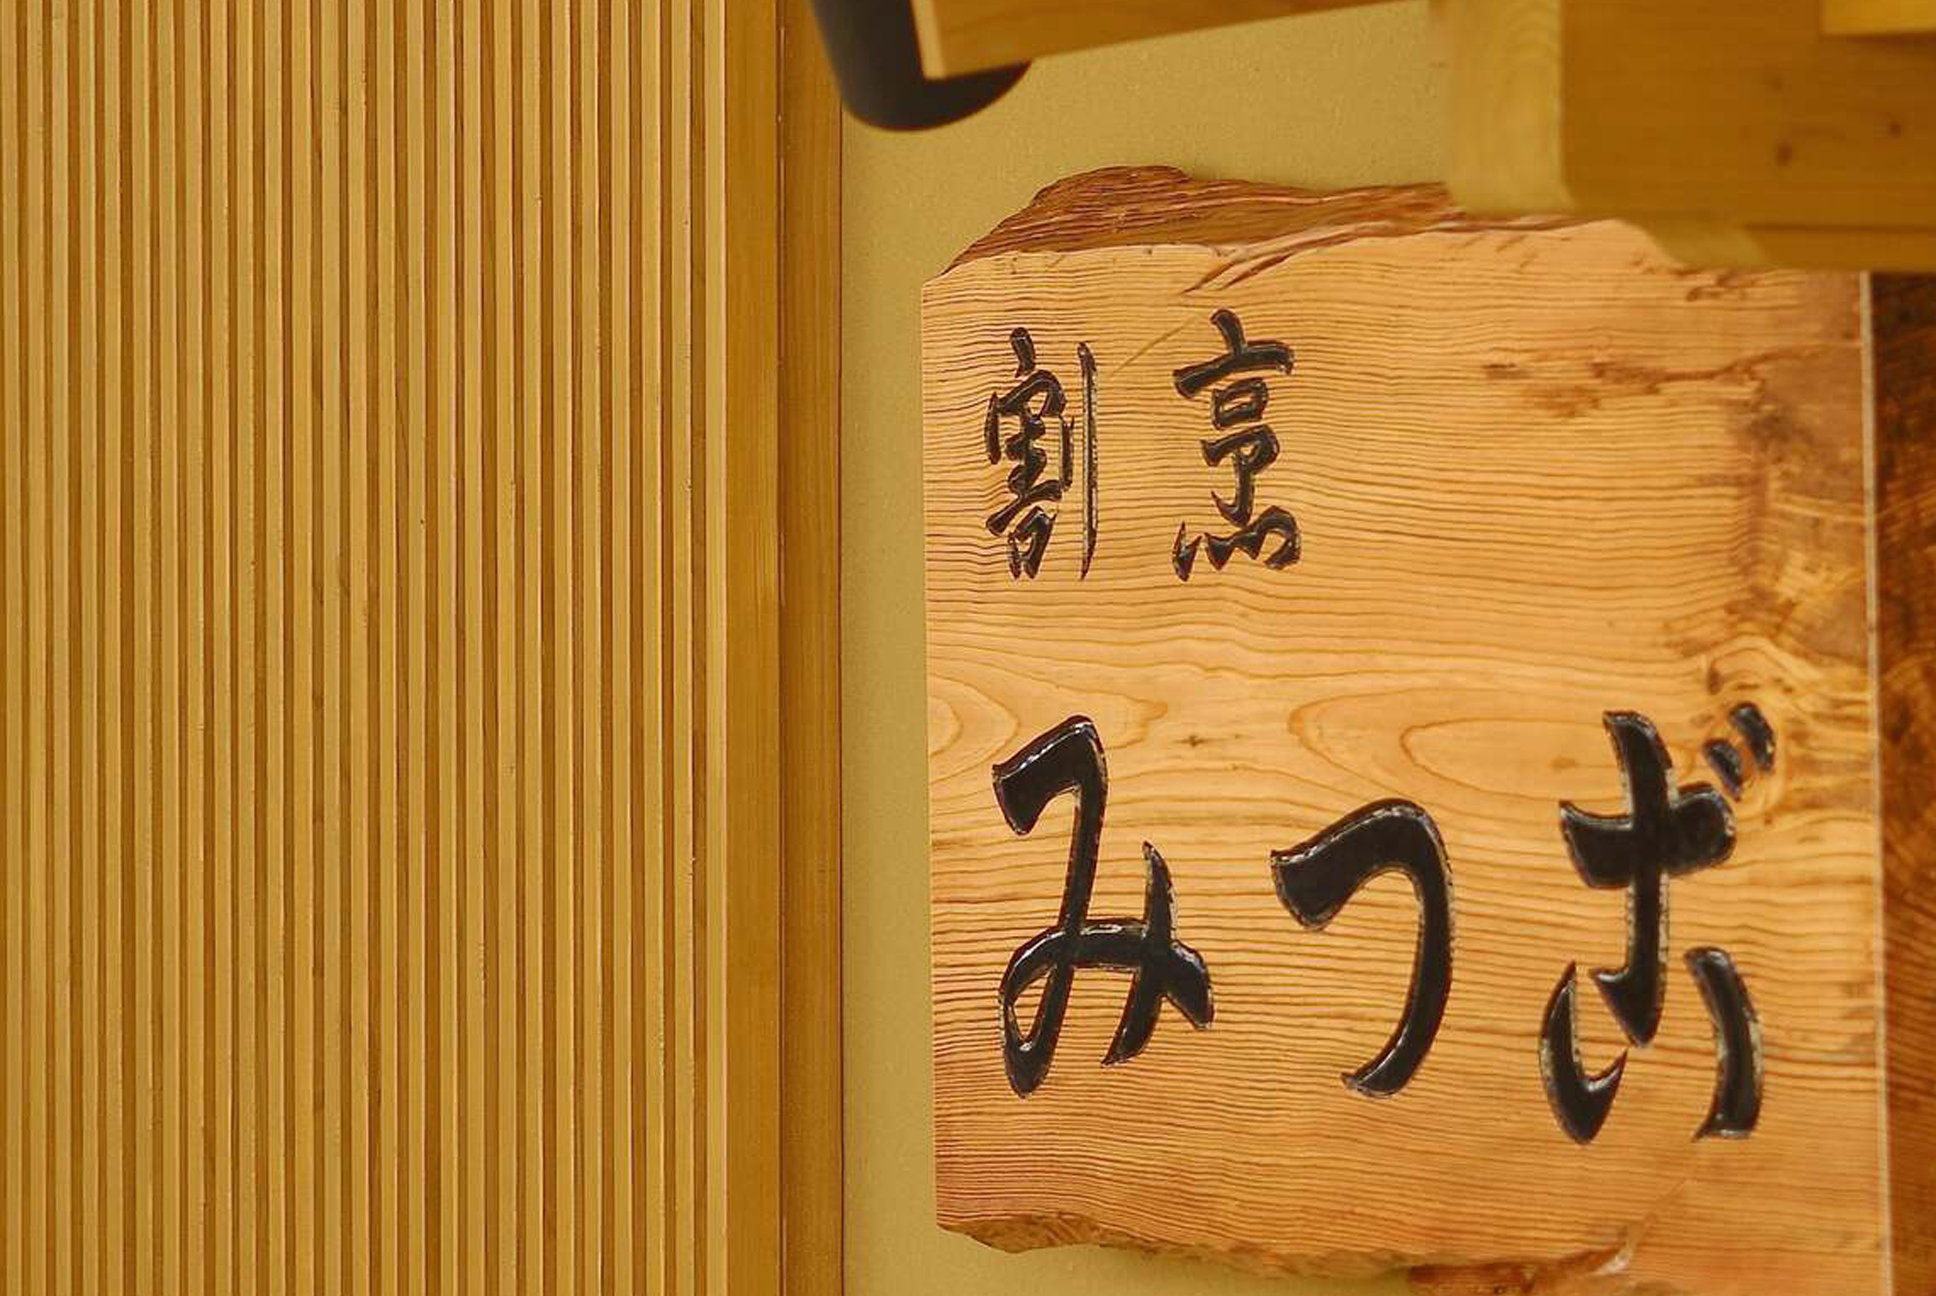 割烹
みつボ